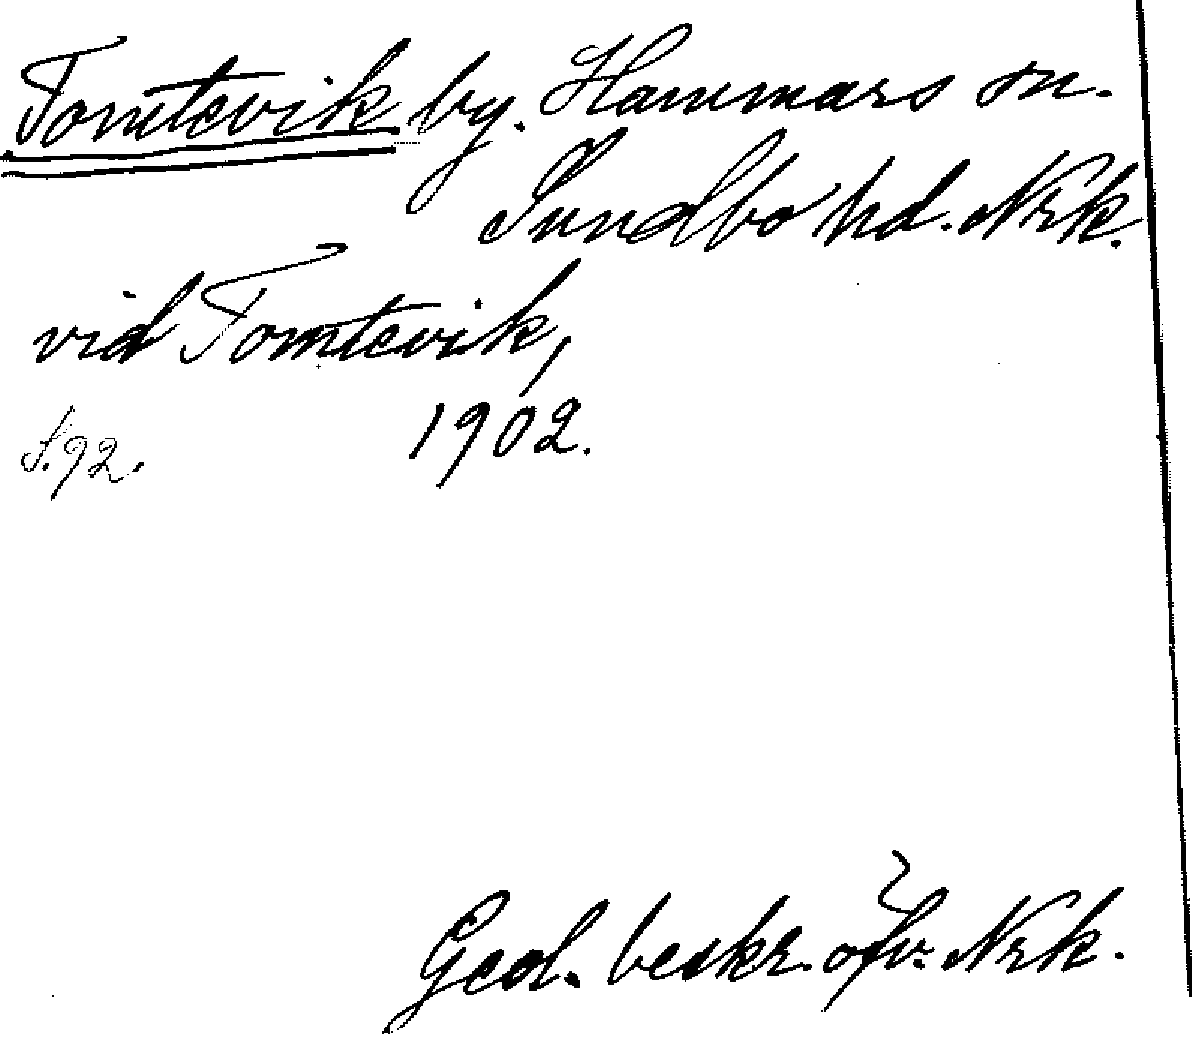 Tomtevik by. Hammars sn.
Sundbo hd. Nrk.
vid Tomtevik,
1902.
S. 92.
Geol. beskr. öfv. Nrk.